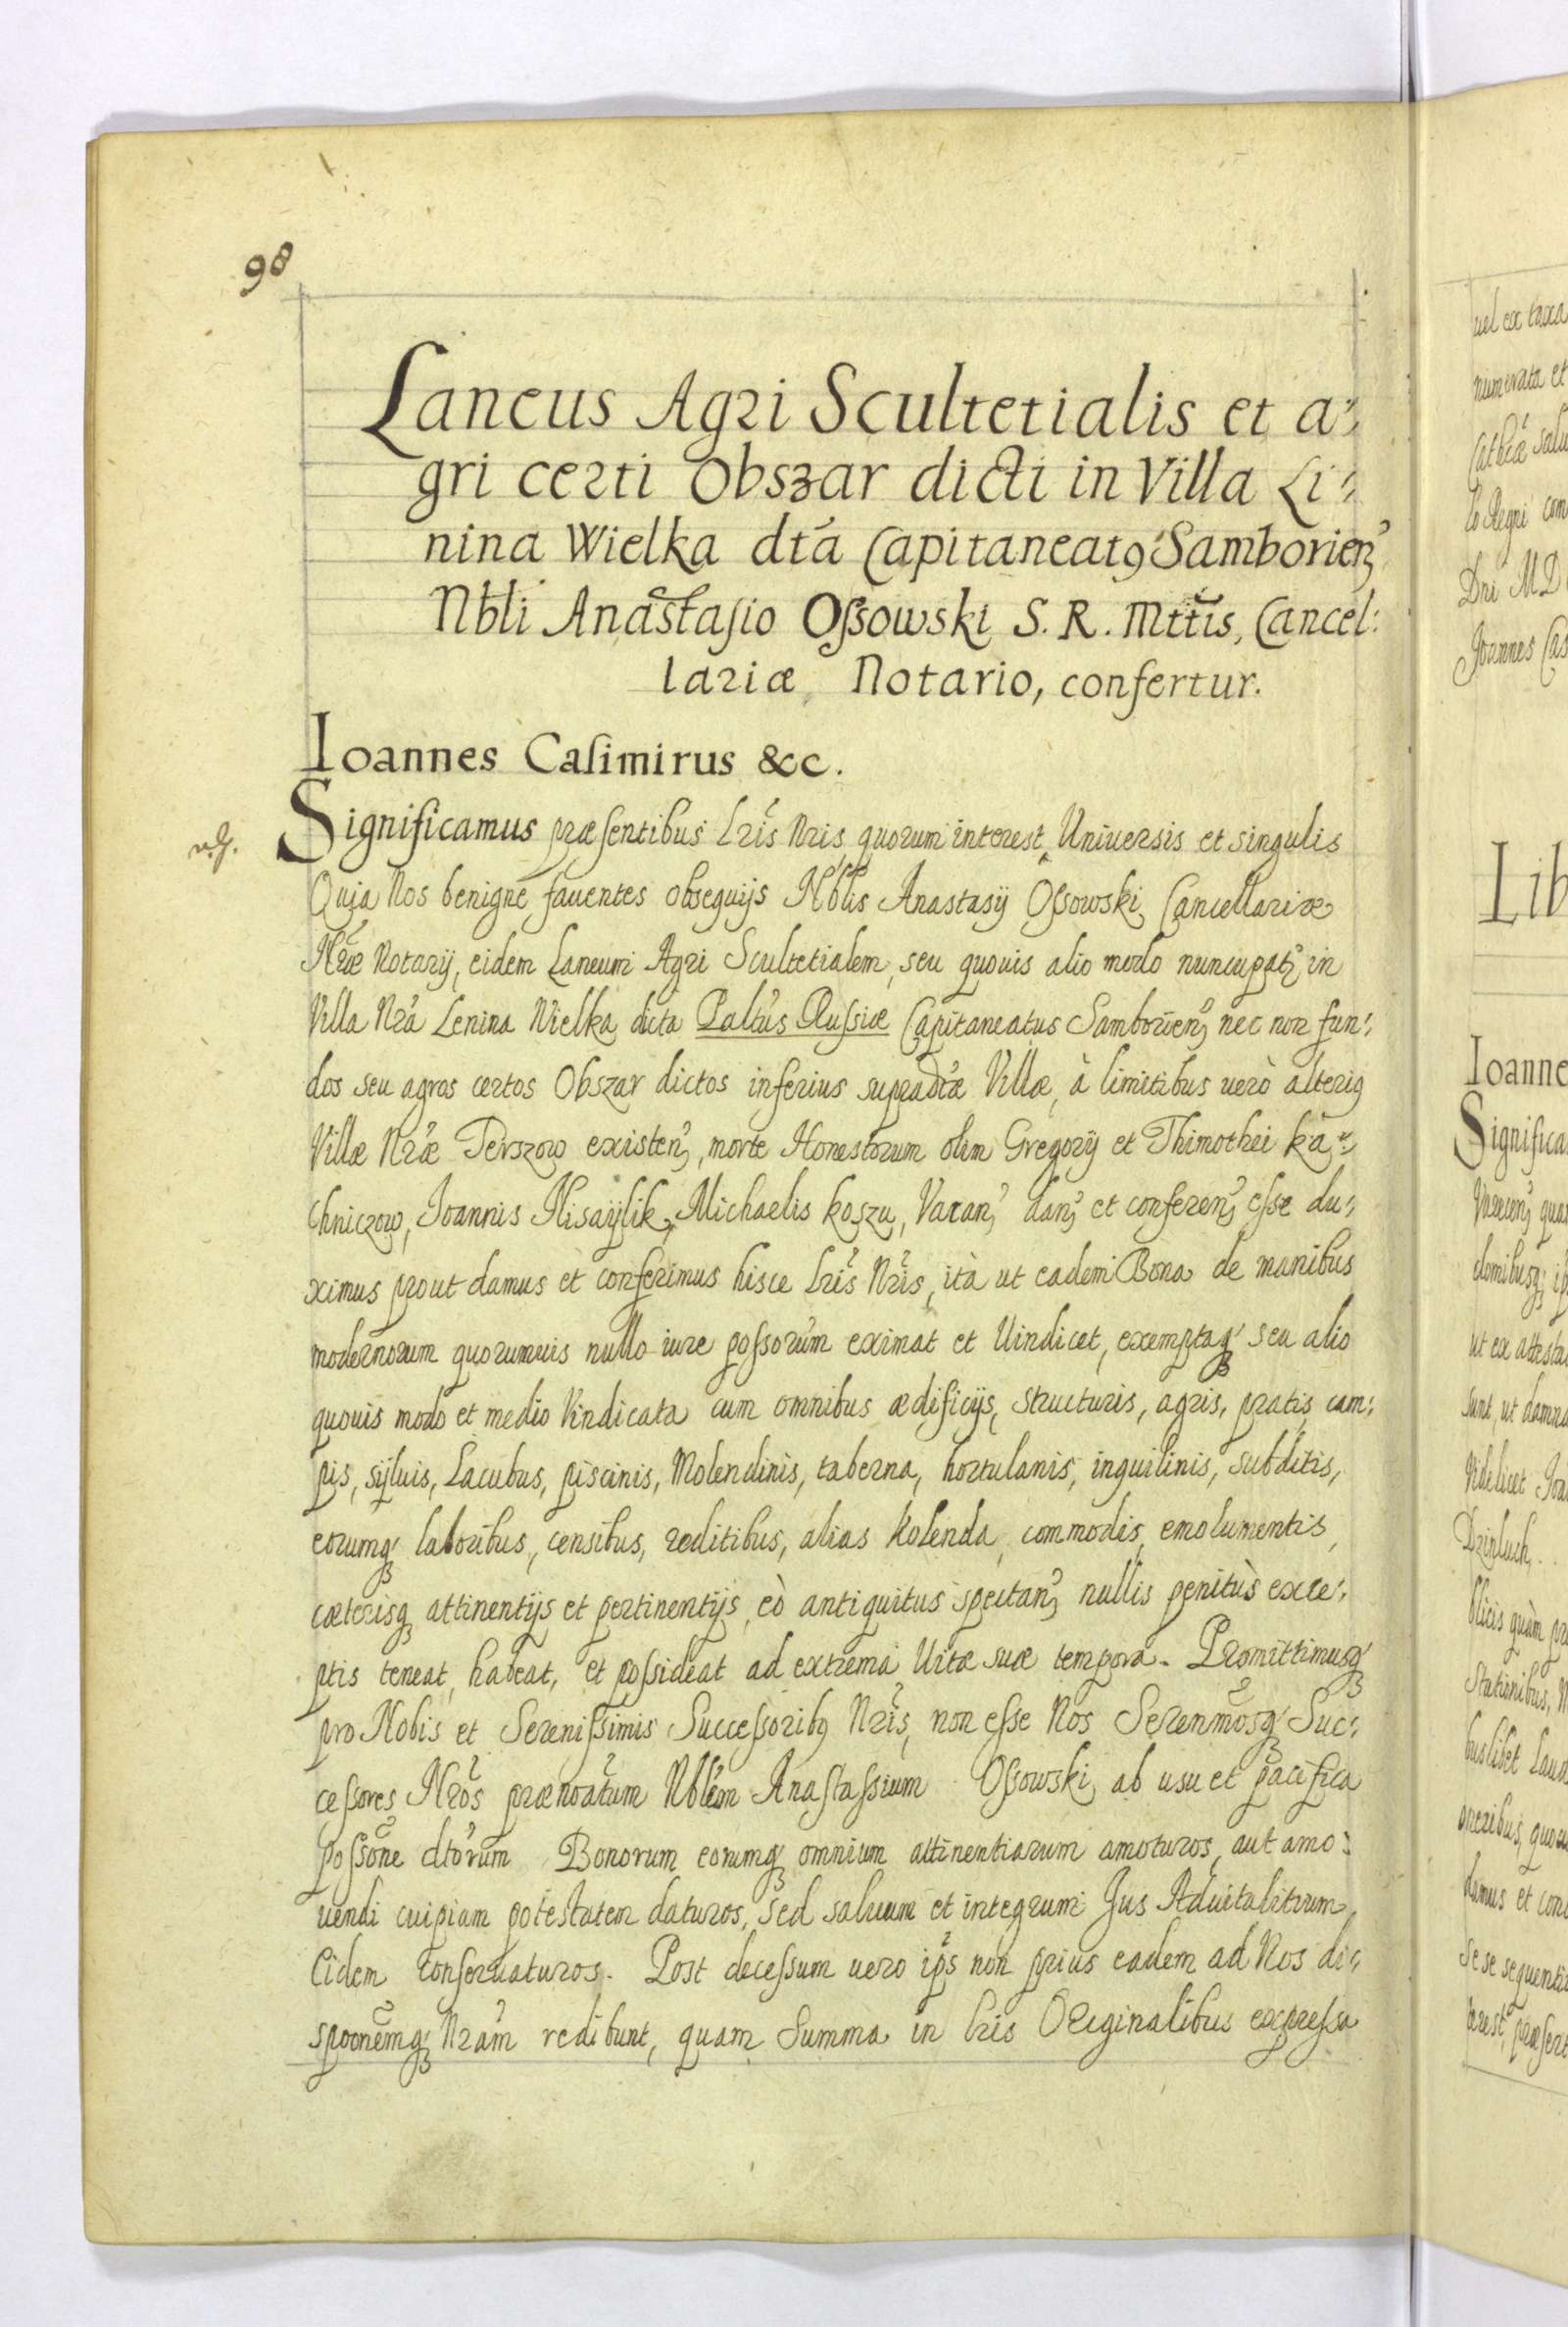 98
Laneus Agri Scultetialis et a⸗
gri certi Obszar dicti in Villa Li⸗
nina Wielka dta Capitaneatꝰ Samborien̄
Nbli Anastasio Ossowski S. R. Mttis, Cancel:
lariæ Notario, confertur.
Ioannes Casimirus &c.
Significamus præsentibus Lris Nris quorum interest, Universis et singulis
Quia Nos benigne fauentes obsequijs Nblis Anastasij Ossowski Cancellariæ
Nræ Notarij, eidem Laneum Agri Scultetialem, seu quouis alio modo nuncupat in
Villa Nra Lenina Wielka dicta Paltus Russiæ Capitaneatus Samborien̄ nec non fun⸗
dos seu agros certos Obszar dictos inferius supradtæ Villæ, à limitibus uerò alteriꝰ
Villæ Nræ Terszow existen̄, morte Honestorum olim Gregorij et Thimothei Ka⸗
chniczow, Ioannis Misaylik, Michaelis koszu, Vacan̄ dan̄ et conferen̄ esse du⸗
ximus prout damus et conferimus hisce Lris Nris, ità ut eadem Bona de manibus
modernorum quorumuis nullo iure possorum eximat et Uindicet, exemptaqꝫ seu alio
quouis modo et medio Vindicata cum omnibus ædificijs, structuris, agris, pratis cam⸗
pis, syluis, Lacubus, piscinis, Molendinis, taberna, hortulanis, inquilinis, subditis,
eorumqꝫ laboribus, censibus, reditibus, alias kolenda, commodis, emolumentis,
cæterisqꝫ attinentijs et pertinentijs, eò antiquitus spectan̄ nullis penitùs exce⸗
ptis teneat, habeat, et possideat ad extrema Uitæ suæ tempora. Promittimusqꝫ
pro Nobis et Serenissimis Successoribꝰ Nris, non esse Nos Serenmosqꝫ Suc⸗
cessores Nros prænoatum Nblem Anastassium Ossowski ab usu et pacifica
possone dtorum Bonorum eorumqꝫ omnium attinentiarum amoturos, aut amo⸗
uendi cuipiam potestatem daturos, sed saluum et integrum Jus Aduitalitium
Eidem conseruaturos. Post decessum uero ips non prius eadem ad Nos di⸗
sponemqꝫ Nram redibunt, quam Summa in Lris Originalibus expressa
uel ex taxa
numerata et
lo Regni com
Dni MD
Joannes Cas
Lib
Ioanne
Significa
ut ex attesta
sunt, ut damna
Videlicet Joa
damus et con
se se sequenti